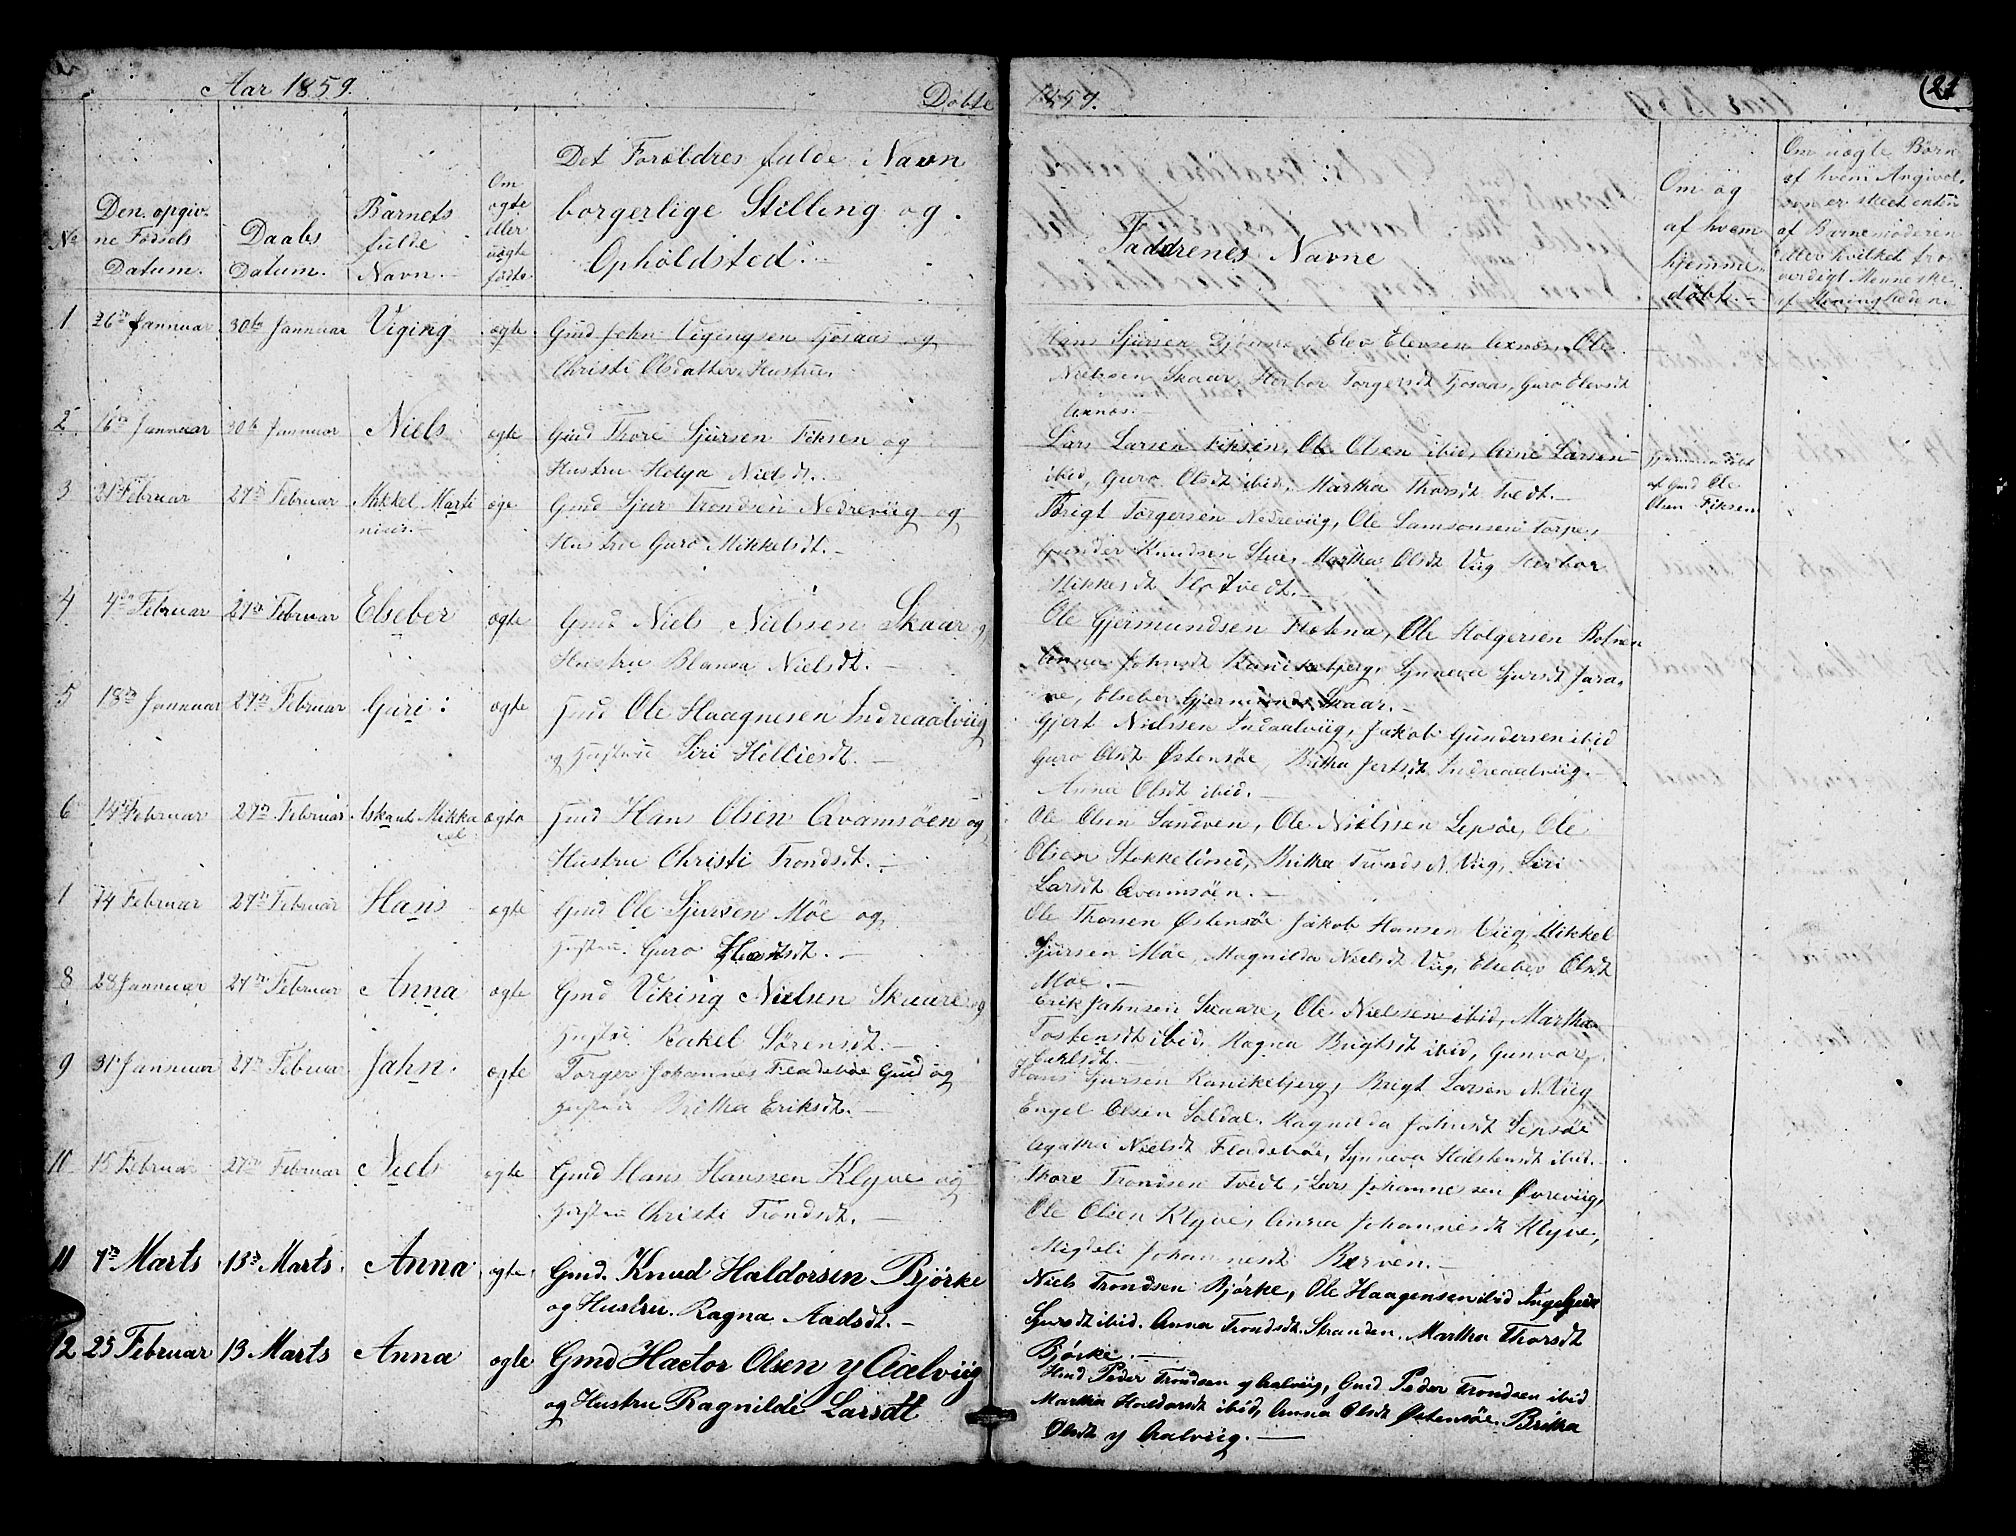 Aar 1859.
Døbte 1859.
21
No
Den opgivne Fødsels Datum.
Daabs Datum.
Barnets fulde Navn.
Om ægte eller uægte født.
Det Forældres fulde Navn
borgerlige Stilling og
Opholdsted.
Faddrenes Navne
Om og af hvem hjemmedøbt.
Om uægte Børn
af hvem Angivel-
sen er skeet enten
af Barnemoderen
eller hvilket tro-
verdigt Menneske
af Menigheden.
1 26de Januar 30te Januar Viging ægte Gmd John Vigingsen Tjosaas og
Christi Olsdatter, Hustru.
Hans Sjursen Djønne, Elev Elevsen Axnæs, Ole
Nielsen Skaar, Herbor Torgersdt Tjosaas, Guro Elevsdt
Axnæs.
2 16de Januar 30te Januar Niels ægte Gmd Thore Sjursen Fiksen og
Hustru Helga Nielsdt.
Lars Larsen Fiksen, Ole Olsen ibid, Arne Larsen
ibid, Guro Olsdt ibid, Martha Thorsdt Tvedt.
hjemmedøbt
af Gmd Ole
Olsen Fiksen
3 21 Februar 27de Februar Mikkel Marti
nius ægte Gmd Sjur Trondsen Nedreviig og
Hustru Guro Mikkelsdt.
Brigt Torgersen Nedreviig, Ole Samsonsen Torpe,
Gunder Knudsen Stue, Martha Olsdt Viig Herbor
Mikkelsdt Flotvedt.
4 4de Februar 27de Februar Elseber ægte Gmd Niels Nielssen Skaar og
Hustru Blansa Nielsdt.
Ole Gjermundsen Flotena, Ole Holgersen Botnen
Anna Johnsdt Kanikebjerg, Synneva Sjursdt Jara,
ne, Elseber Gjermundsdt Skaar.
5 18de Januar 27de Februar Guri ægte Gmd Ole Haagnesen Indreaalviig
og Hustru Siri Hellicsdt.
Gjert Nielssen Indaalviig, Jakob Gundersen ibid
Guro Olsdt Østensøe, Britha Jertsdt Indreaalviig.
Anna Olsdt ibid.
6 14de Februar 27de Februar Askaut Mikka
el ægte Gmd Hans Olsen Qvamsøen og
Hustru Christi Trondsdt.
Ole Olsen Sandven, Ole Nielssen Lepsøe, Ole
Olsen Stekkelund, Britha Trondsdt N. Viig, Siri
Larsdt Qvamsøen.
1 14 Februar 27de Februar Hans ægte Gmd Ole Sjursen Møe og
Hustru Guro Hansdt.
Ole Thorsen Østensøe Jakob Hansen Viig Mikkel
Sjursen Møe, Magnilda Nielsdt Viig, Elseber Olsdt
Møe.
8 28 Januar 27de Februar Anna ægte Gmd Viking Nielsen Skaare og
Hustru Rakel Sørensdt.
Erik Jahnsen Skaare, Ole Nielssen ibid, Martha
Tostensdt ibid, Ragna Brigtsdt ibid, Gunvor
9 31 Januar 27de Februar Jahn ægte Torger Johannes Fladebøe Gmd og
Hustru Britha Eriksdt.
Hans Sjursen Kanikebjerg, Brigt Larsen N. Viig
Engel Olsen Soldal, Magnilda Johnsdt Lepsøe
Agatha Nielsdt Fladebøe, Synneva Halstensdt ibid.
10 15 Februar 27de Februar Niels ægte Gmd Hans Hanssen Klyve og
Hustru Christi Trondsdt.
Thore Trondsen Tvedt, Lars Johannesen Øvreviig,
Ole Olsen Klyve, Anna Johannesdt Klyve,
Migdeli Johannesdt Berven.
11 7de Marts 13de Marts Anna ægte Gmd. Knud Haldorsen Bjørke
og Hustru Ragna Aadsdt.
Niels Trondsen Bjørke, Ole Haagensen ibid Ingegjerd
Sjursdt ibid. Anna Trondsdt Stranden, Martha Thorsdt
Bjørke.
12 25 Februar 13 Marts Anna ægte Gmd Hactor Olsen y Aalviig
og Hustru Ragnilde Larsdt
Gmd Peder Trondsen y Aalviig, Gmd Peder Trondsen ibid
Martha Haldorsdt ibid, Anna Olsdt Østensøe, Britha
Olsdt y Aalviig.